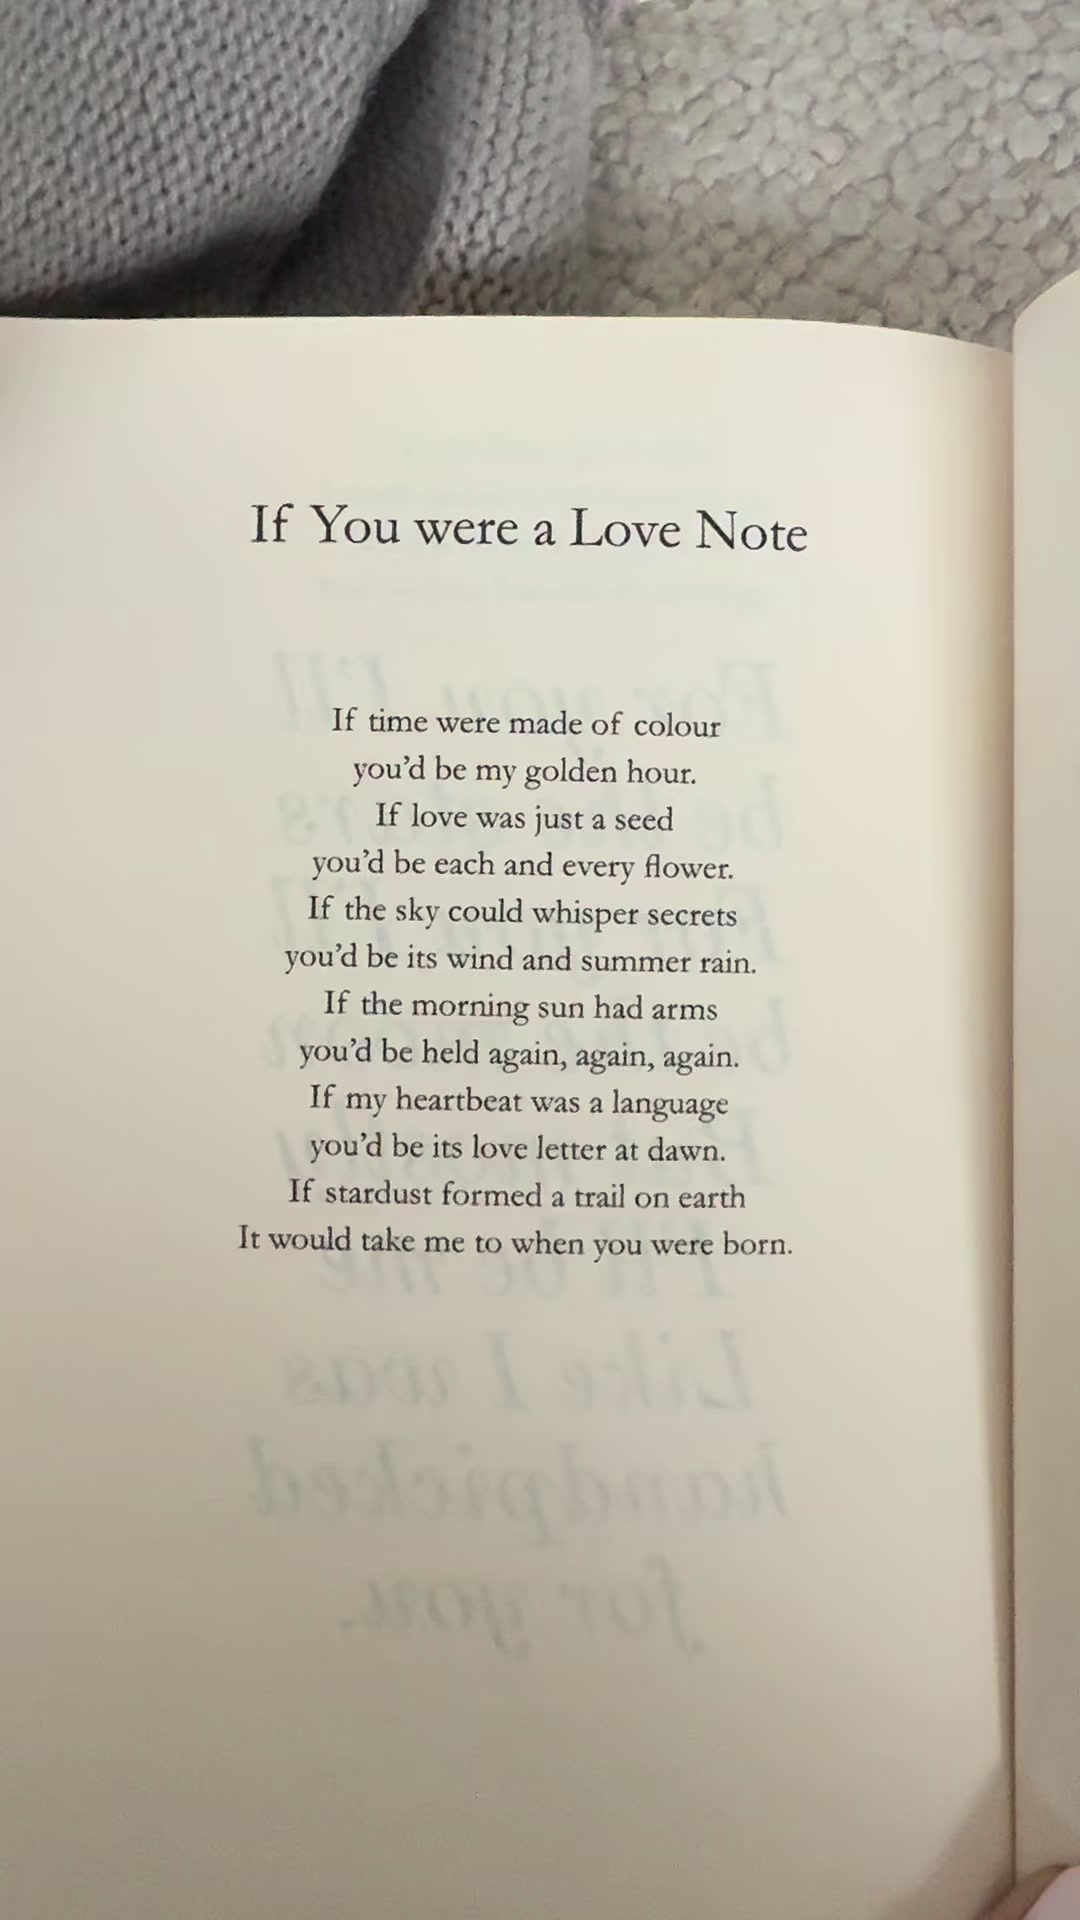 If You were a Love Note
If time were made of colour
you'd be my golden hour.
If love was just a seed
you'd be each and every flower.
If the sky could whisper secrets
you'd be its wind and summer rain.
If the morning sun had arms
you'd be held again, again, again.
If my heartbeat was a language
you'd be its love letter at dawn.
If stardust formed a trail on earth
It would take me to when you were born.